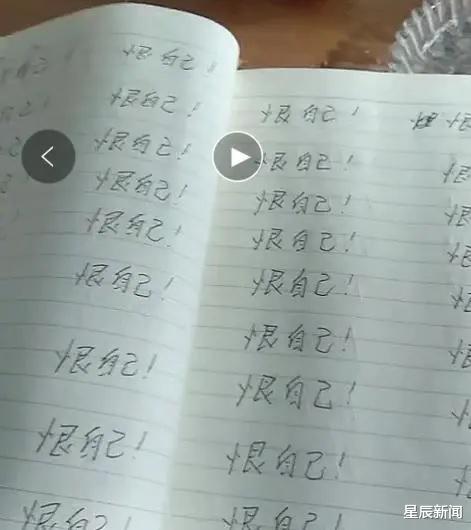 恨自己！
恨自己！
恨自己！
恨自己！
恨自己！
恨自己！
恨自己！
恨自己！
恨自己
恨自己！
恨自己！
恨自己！
恨自己！
恨自己！
恨自己！
恨自己！
恨自己！
恨自己！
星辰新闻